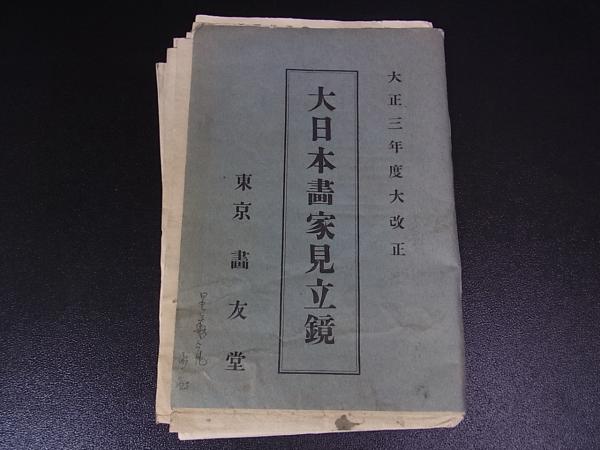 大正三年度大改正
大日本畫家見立鏡
東京畫友堂